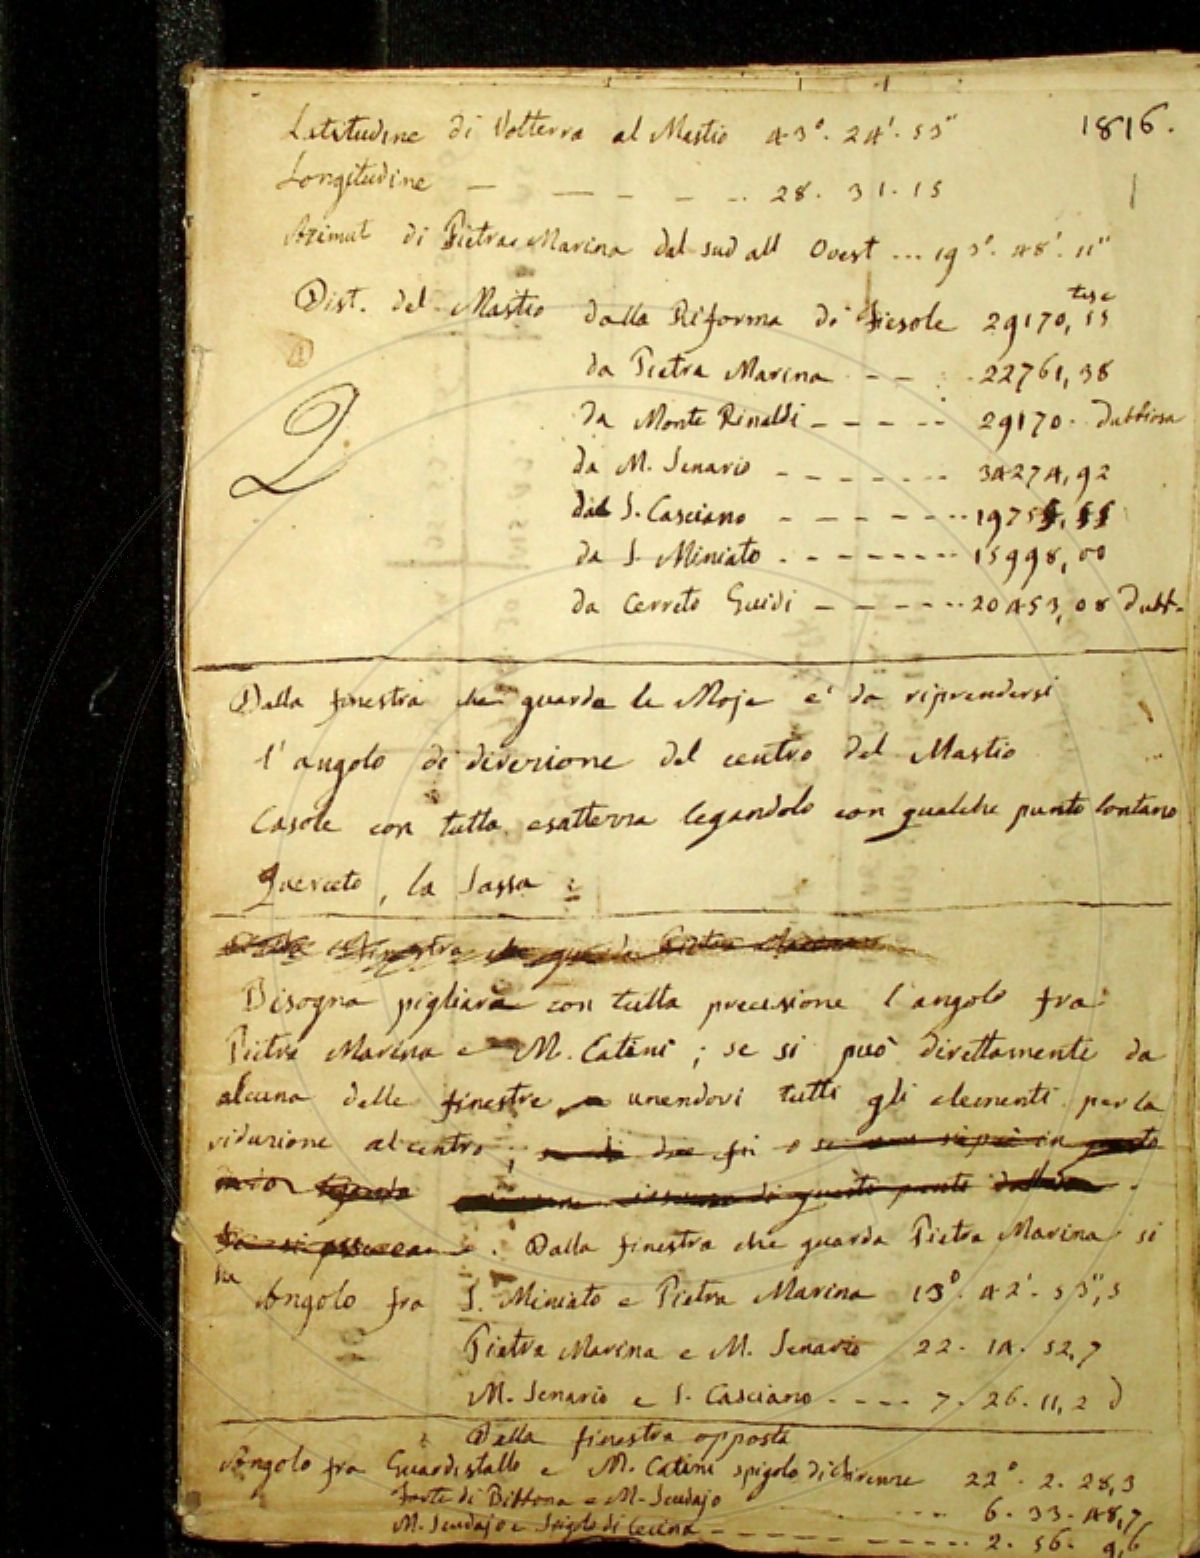 1816.
Latitudine di Volterra al Mastio 43°. 24'. 53"
Longitudine — — — — .. 28. 31. 15
Azimut di Pietra Marina dal sud all Ovest ... 193°. 48'. 11"
Dist. del Mastio dalla Riforma di Fiesole 29170, 55 tese
da Pietra Marina - - - . 22761, 38
2 da Monte Rinaldi - - - - -- 29170. dubbiosa
da M. Senario - - - - - - - 34274, 92
da S. Casciano - - - - - - -- 1975
da S. Miniato - - - - - - - - 15998, 00
da Cerreto Guidi - - - - - -- 20453, 08 dubb.
Dalla finestra che guarda le Moje e' da riprendersi
l'angolo di direzione del centro del Mastio
Casole con tutta esattezza legandolo con qualche punto lontano
Querceto, la Sassa :
finestra che guarda Pietra Marina
Bisogna pigliare con tutta precisione l'angolo fra
Pietra Marina e M. Catini ; se si può direttamente da
alcuna delle finestre unendovi tutti gli elementi per la
riduzione al centro ;
questo punto
. Dalla finestra che guarda Pietra Marina si
ha Angolo fra S. Miniato e Pietra Marina 13°. 42'. 53",5
Pietra Marina e M. Senario 22. 14. 52,7
M. Senario e S. Casciano - - - - 7. 26. 11,2 d
Dalla finestra opposta
Angolo fra Guardistallo e M. Catini spigolo di Firenze 22°. 2. 28,3
Forte di Bibbona e M. Scudajo - - - 6. 33. 48,7
M. Scudajo e Spigolo di Cecina - - - - - - - - - - 2. 56. 9,6